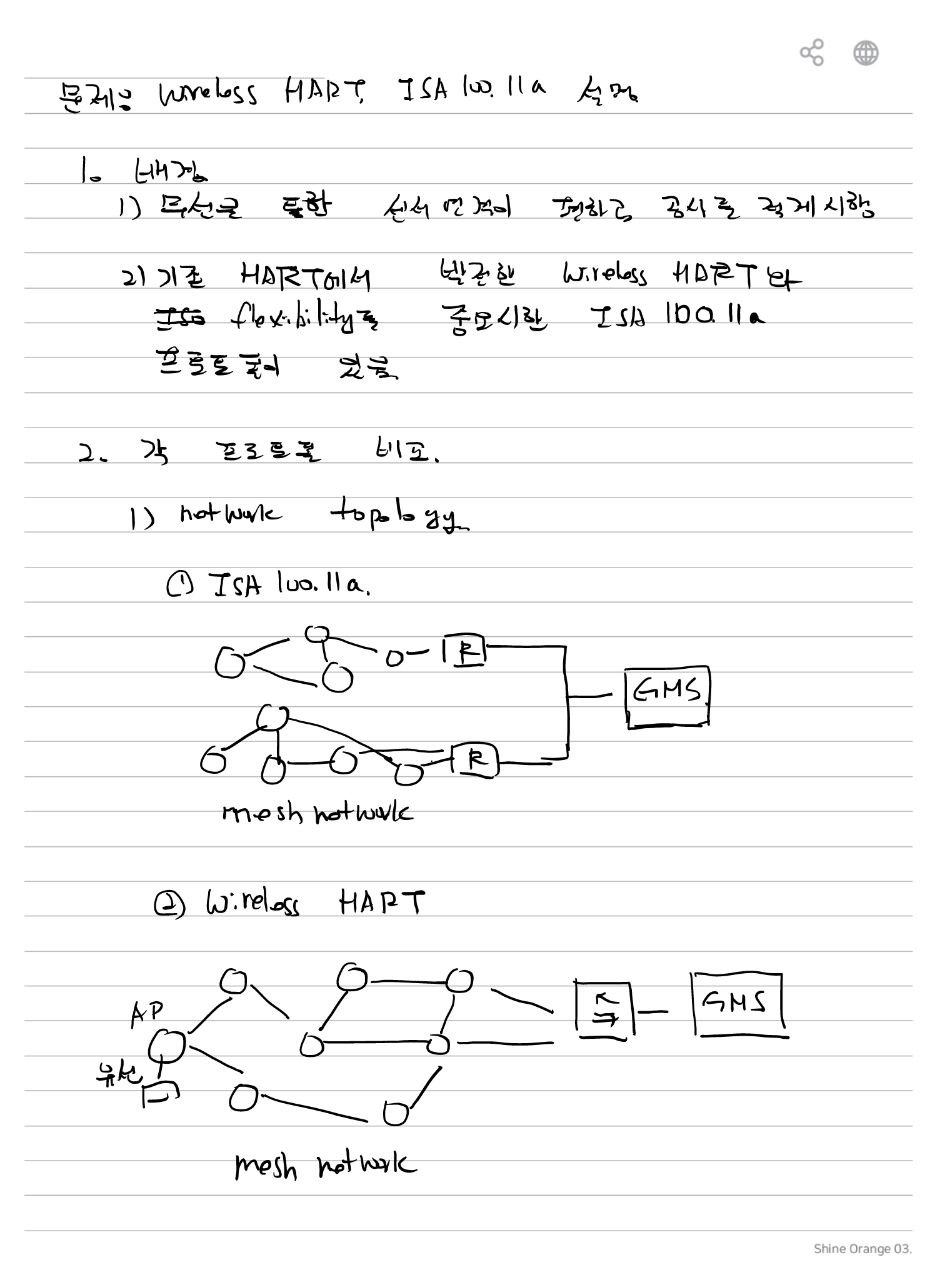 문제) Wireless HART, ISA 100.11a 설명
1. 배경
1) 무선을 통한 센서 연결이 편하고 공사를 적게시함
2) 기존 HART에서 발전한 Wireless HART와
flexibility를 중요시한 ISA 100.11a
프로토콜이 있음.
2. 각 프로토콜 비교.
1) network topology
① ISA 100.11a.
R
GMS
R
mesh network
② Wireless HART
AP
유선
GMS
mesh network
Shine Orange 03.